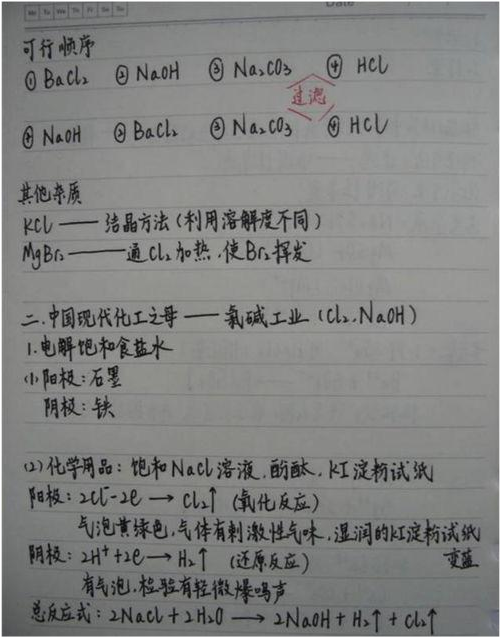 Mo Tu We Th Fr Sa Su
Date
可行顺序
① BaCl₂ ② NaOH ③ Na₂CO₃ ④ HCl
过滤
① NaOH ② BaCl₂ ③ Na₂CO₃ ④ HCl
其他杂质
KCl —— 结晶方法(利用溶解度不同)
MgBr₂ —— 通Cl₂加热,使Br₂挥发
二.中国现代化工之母 —— 氯碱工业(Cl₂、NaOH)
1.电解饱和食盐水
(1)阳极:石墨
阴极:铁
(2)化学用品:饱和NaCl溶液,酚酞,KI淀粉试纸
阳极:2Cl⁻-2e → Cl₂↑ (氧化反应)
气泡黄绿色,气体有刺激性气味,湿润的KI淀粉试纸
变蓝
阴极:2H⁺+2e → H₂↑ (还原反应)
有气泡,检验有轻微爆鸣声
总反应式:2NaCl+2H₂O → 2NaOH+H₂↑+Cl₂↑